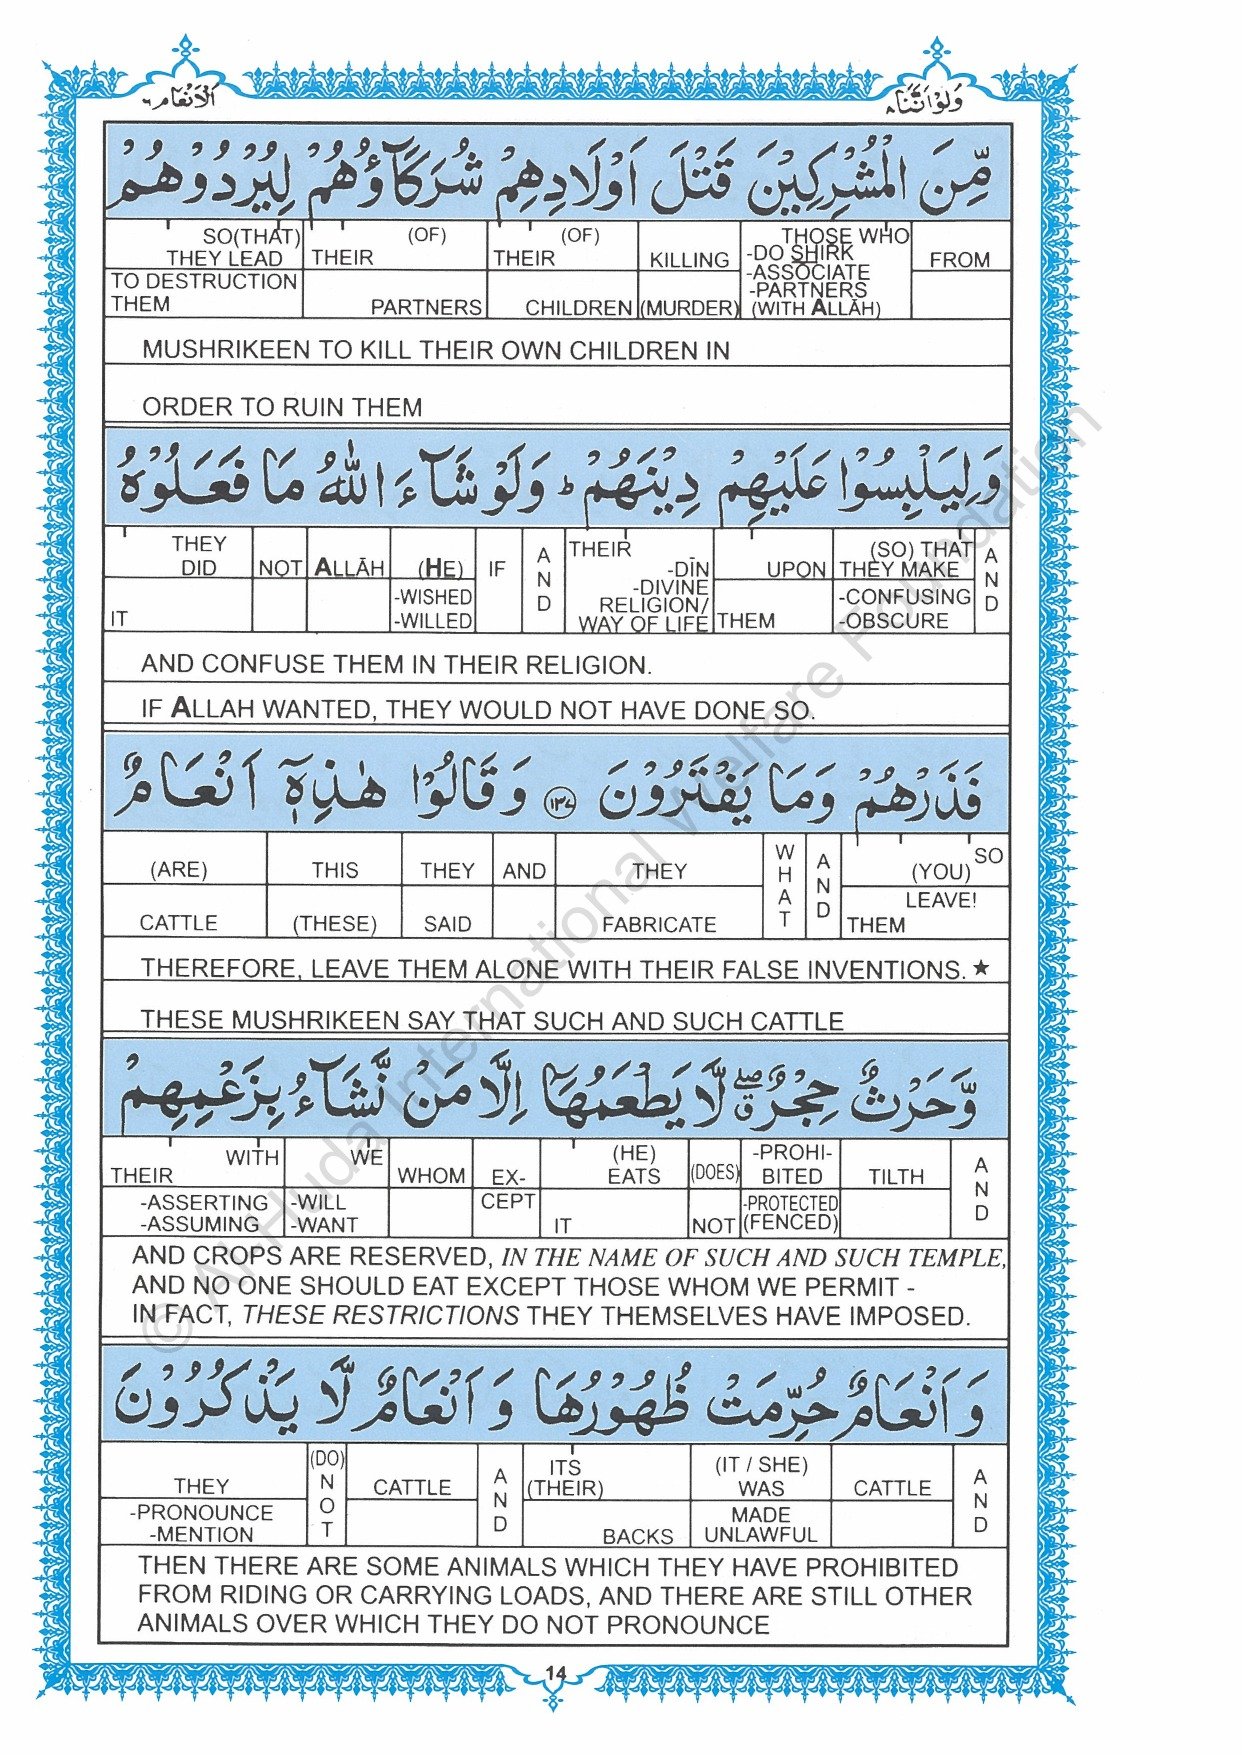 الانعام ٦
ولو اننا ٨
مِّنَ الْمُشْرِكِيْنَ قَتْلَ اَوْلَادِهِمْ شُرَكَآؤُهُمْ لِيُرْدُوْهُمْ
SO(THAT) THEY LEAD TO DESTRUCTION THEM | THEIR (OF) PARTNERS | THEIR (OF) CHILDREN | KILLING (MURDER) | THOSE WHO -DO SHIRK -ASSOCIATE -PARTNERS (WITH ALLĀH) | FROM
MUSHRIKEEN TO KILL THEIR OWN CHILDREN IN
ORDER TO RUIN THEM
وَلِيَلْبِسُوْا عَلَيْهِمْ دِيْنَهُمْ ؕ وَلَوْ شَآءَ اللّٰهُ مَا فَعَلُوْهُ
THEY DID IT | NOT | ALLĀH | (HE) -WISHED -WILLED | IF | AND | THEIR -DĪN -DIVINE RELIGION/ WAY OF LIFE | UPON THEM | (SO) THAT THEY MAKE -CONFUSING -OBSCURE | AND
AND CONFUSE THEM IN THEIR RELIGION.
IF ALLAH WANTED, THEY WOULD NOT HAVE DONE SO.
فَذَرْهُمْ وَمَا يَفْتَرُوْنَ ۝١٣٧ وَقَالُوْا هٰذِهٖٓ اَنْعَامٌ
(ARE) CATTLE | THIS (THESE) | THEY SAID | AND | THEY FABRICATE | WHAT | AND | SO (YOU) LEAVE! THEM
THEREFORE, LEAVE THEM ALONE WITH THEIR FALSE INVENTIONS.★
THESE MUSHRIKEEN SAY THAT SUCH AND SUCH CATTLE
وَّحَرْثٌ حِجْرٌ ۖ ق لَّا يَطْعَمُهَآ اِلَّا مَنْ نَّشَآءُ بِزَعْمِهِمْ
WITH THEIR -ASSERTING -ASSUMING | WE -WILL -WANT | WHOM | EX-CEPT | (HE) EATS IT | (DOES) NOT | -PROHI-BITED -PROTECTED (FENCED) | TILTH | AND
AND CROPS ARE RESERVED, IN THE NAME OF SUCH AND SUCH TEMPLE,
AND NO ONE SHOULD EAT EXCEPT THOSE WHOM WE PERMIT -
IN FACT, THESE RESTRICTIONS THEY THEMSELVES HAVE IMPOSED.
وَاَنْعَامٌ حُرِّمَتْ ظُهُوْرُهَا وَاَنْعَامٌ لَّا يَذْكُرُوْنَ
THEY -PRONOUNCE -MENTION | (DO) NOT | CATTLE | AND | ITS (THEIR) BACKS | (IT / SHE) WAS MADE UNLAWFUL | CATTLE | AND
THEN THERE ARE SOME ANIMALS WHICH THEY HAVE PROHIBITED
FROM RIDING OR CARRYING LOADS, AND THERE ARE STILL OTHER
ANIMALS OVER WHICH THEY DO NOT PRONOUNCE
14
© Al-Huda International Welfare Foundation